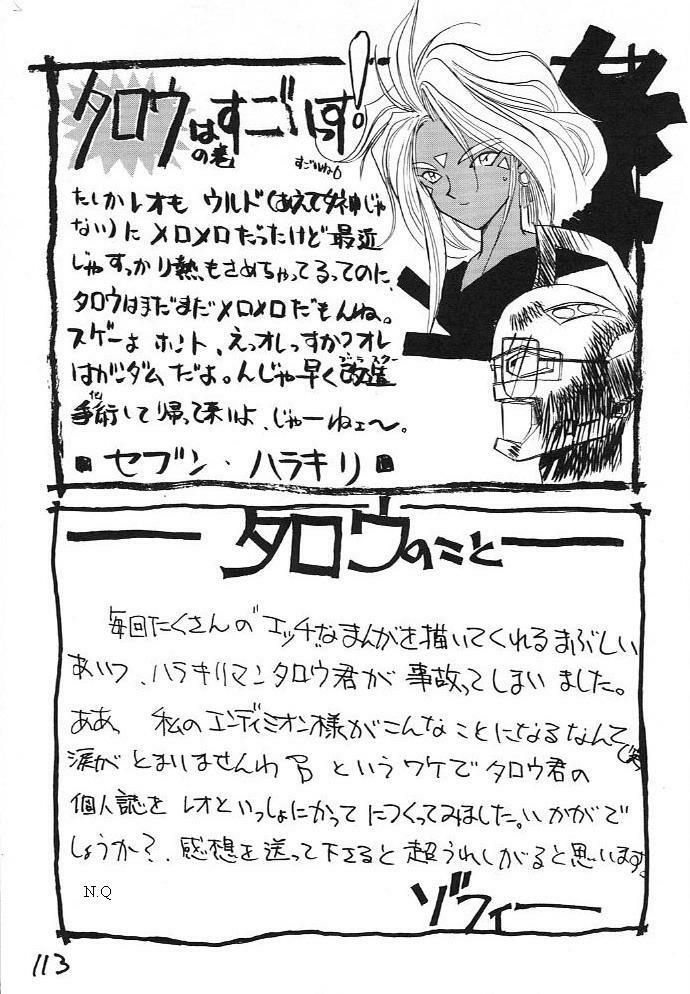 タロウはすごいっす!
の巻
すごいね
たしかレオも ウルド(あえて女神じゃ
ない)にメロメロだったけど最近
じゃすっかり熱もさめちゃってるってのに、
タロウはまだまだメロメロだもんね。
スゲーよ ホント、えっオレっすか?オレ
はガンダムだよ。んじゃ早く改造
手術して帰って来いよ、じゃーねェ〜。
■セブン・ハラキリ■
タロウのこと
毎回たくさんの“エッチ”なまんがを描いてくれるまぶしい
あいつ、ハラキリマンタロウ君が事故ってしまいました。
ああ、私のエンディミオン様がこんなことになるなんて
涙がとまりませんわ(笑) というワケでタロウ君の
個人誌をレオといっしょにかってにつくってみました。いかがで
しょうか?、感想を送って下さると超うれしがると思います。
N.Q
ゾフィー
113